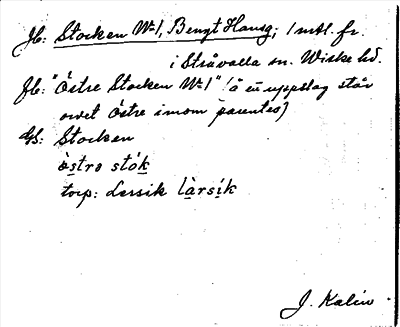 Jb: Stocken No 1, Bengt Hansg; 1 mtl. fr.
i Stråvalla sn. Wiske hd.
Jb: "Östre Stocken No 1" (å ett uppslag står
ordet Östre inom parentes)
Gs: Stocken
östrə stók
torp: Lersik làrsík
J. Kalén